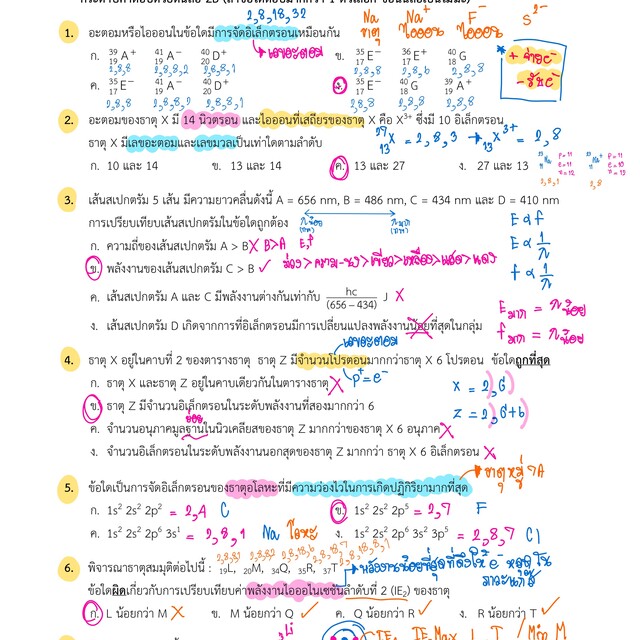 2,8,18,32 Na Na⁺ F⁻ S²⁻
ธาตุ ไอออน ไอออน
1. อะตอมหรือไอออนในข้อใดมีการจัดอิเล็กตรอนเหมือนกัน
เลขอะตอม
+ จ่ายe⁻
- รับe⁻
ก. ³⁹₁₉A⁺ ⁴¹₂₀A⁻ ⁴⁰₂₀D⁺ ข. ³⁵₁₇E⁻ ³⁶₁₇E⁺ ⁴⁰₁₈G
2,8,8 2,8,8,2 2,8,8,1 2,8,8 2,8,6 2,8,8
ค. ³⁹₁₉A⁺ ⁴¹₁₉A⁻ ⁴⁰₂₀D⁺ ง. ³⁵₁₇E⁻ ³⁹₁₉A⁺ ⁴⁰₁₈G
2,8,8 2,8,8,2 2,8,8,1 2,8,8 2,8,8 2,8,8
2. อะตอมของธาตุ X มี 14 นิวตรอน และไอออนที่เสถียรของธาตุ X คือ X³⁺ ซึ่งมี 10 อิเล็กตรอน
²⁷₁₃X = 2,8,3 → X³⁺ = 2,8
ธาตุ X มีเลขอะตอมและเลขมวลเป็นเท่าใดตามลำดับ
ก. 10 และ 14 ข. 13 และ 14 ค. 13 และ 27 ง. 27 และ 13
3. เส้นสเปกตรัม 5 เส้น มีความยาวคลื่นดังนี้ A = 656 nm, B = 486 nm, C = 434 nm และ D = 410 nm
การเปรียบเทียบเส้นสเปกตรัมในข้อใดถูกต้อง
E ∝ f
ก. ความถี่ของเส้นสเปกตรัม A > B X B>A E,f
E ∝ 1/λ
ข. พลังงานของเส้นสเปกตรัม C > B ✓ ม่วง>คราม-นง>เขียว>เหลือง>แสด>แดง
f ∝ 1/λ
ค. เส้นสเปกตรัม A และ C มีพลังงานต่างกันเท่ากับ hc/(656 – 434) J X
E มาก = λ น้อย
ง. เส้นสเปกตรัม D เกิดจากการที่อิเล็กตรอนมีการเปลี่ยนแปลงพลังงานน้อยที่สุดในกลุ่ม
f มาก = λ น้อย
เลขอะตอม
4. ธาตุ X อยู่ในคาบที่ 2 ของตารางธาตุ ธาตุ Z มีจำนวนโปรตอนมากกว่าธาตุ X 6 โปรตอน ข้อใดถูกที่สุด
p⁺ = e⁻
ก. ธาตุ X และธาตุ Z อยู่ในคาบเดียวกันในตารางธาตุ X
X = 2,6
ข. ธาตุ Z มีจำนวนอิเล็กตรอนในระดับพลังงานที่สองมากกว่า 6
Z = 2,6+6
ค. จำนวนอนุภาคมูลฐานในนิวเคลียสของธาตุ Z มากกว่าของธาตุ X 6 อนุภาค X
ง. จำนวนอิเล็กตรอนในระดับพลังงานนอกสุดของธาตุ Z มากกว่า ธาตุ X 6 อิเล็กตรอน X
ธาตุหมู่ 7A
5. ข้อใดเป็นการจัดอิเล็กตรอนของธาตุอโลหะที่มีความว่องไวในการเกิดปฏิกิริยามากที่สุด
ก. 1s² 2s² 2p² = 2,4 C ข. 1s² 2s² 2p⁵ = 2,7 F
ค. 1s² 2s² 2p⁶ 3s¹ = 2,8,1 Na โลหะ ง. 1s² 2s² 2p⁶ 3s² 3p⁵ = 2,8,7 Cl
6. พิจารณาธาตุสมมุติต่อไปนี้ : ₁₉L, ₂₀M, ₃₄Q, ₃₅R, ₃₇T
ข้อใดผิดเกี่ยวกับการเปรียบเทียบค่าพลังงานไอออไนเซชันลำดับที่ 2 (IE₂) ของธาตุ
ก. L น้อยกว่า M X ข. M น้อยกว่า Q ✓ ค. Q น้อยกว่า R ✓ ง. R น้อยกว่า T ✓